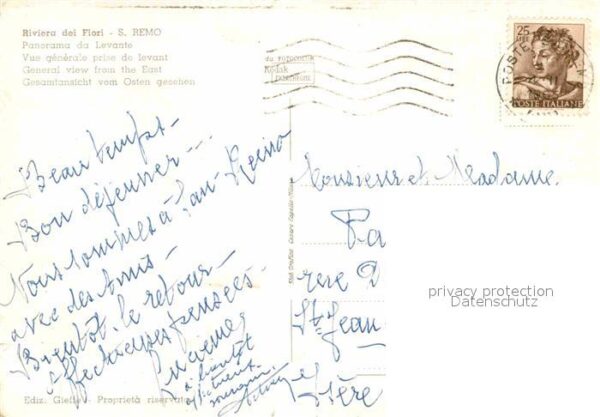 Riviera dei Fiori - S. REMO
Panorama da Levante
Vue générale prise de levant
General view from the East
Gesamtansicht vom Osten gesehen
Kodak
25
LIRE
POSTE ITALIANE
Beau temps -
Bon déjeuner -
Nous sommes à San-Remo
avec des Amis -
Bientôt le retour -
Affectueuses pensées -
à bientôt
Monsieur et Madame
Pa
rere D
St Jean
privacy protection
Datenschutz
Ediz. Gieffe - Proprietà riservata